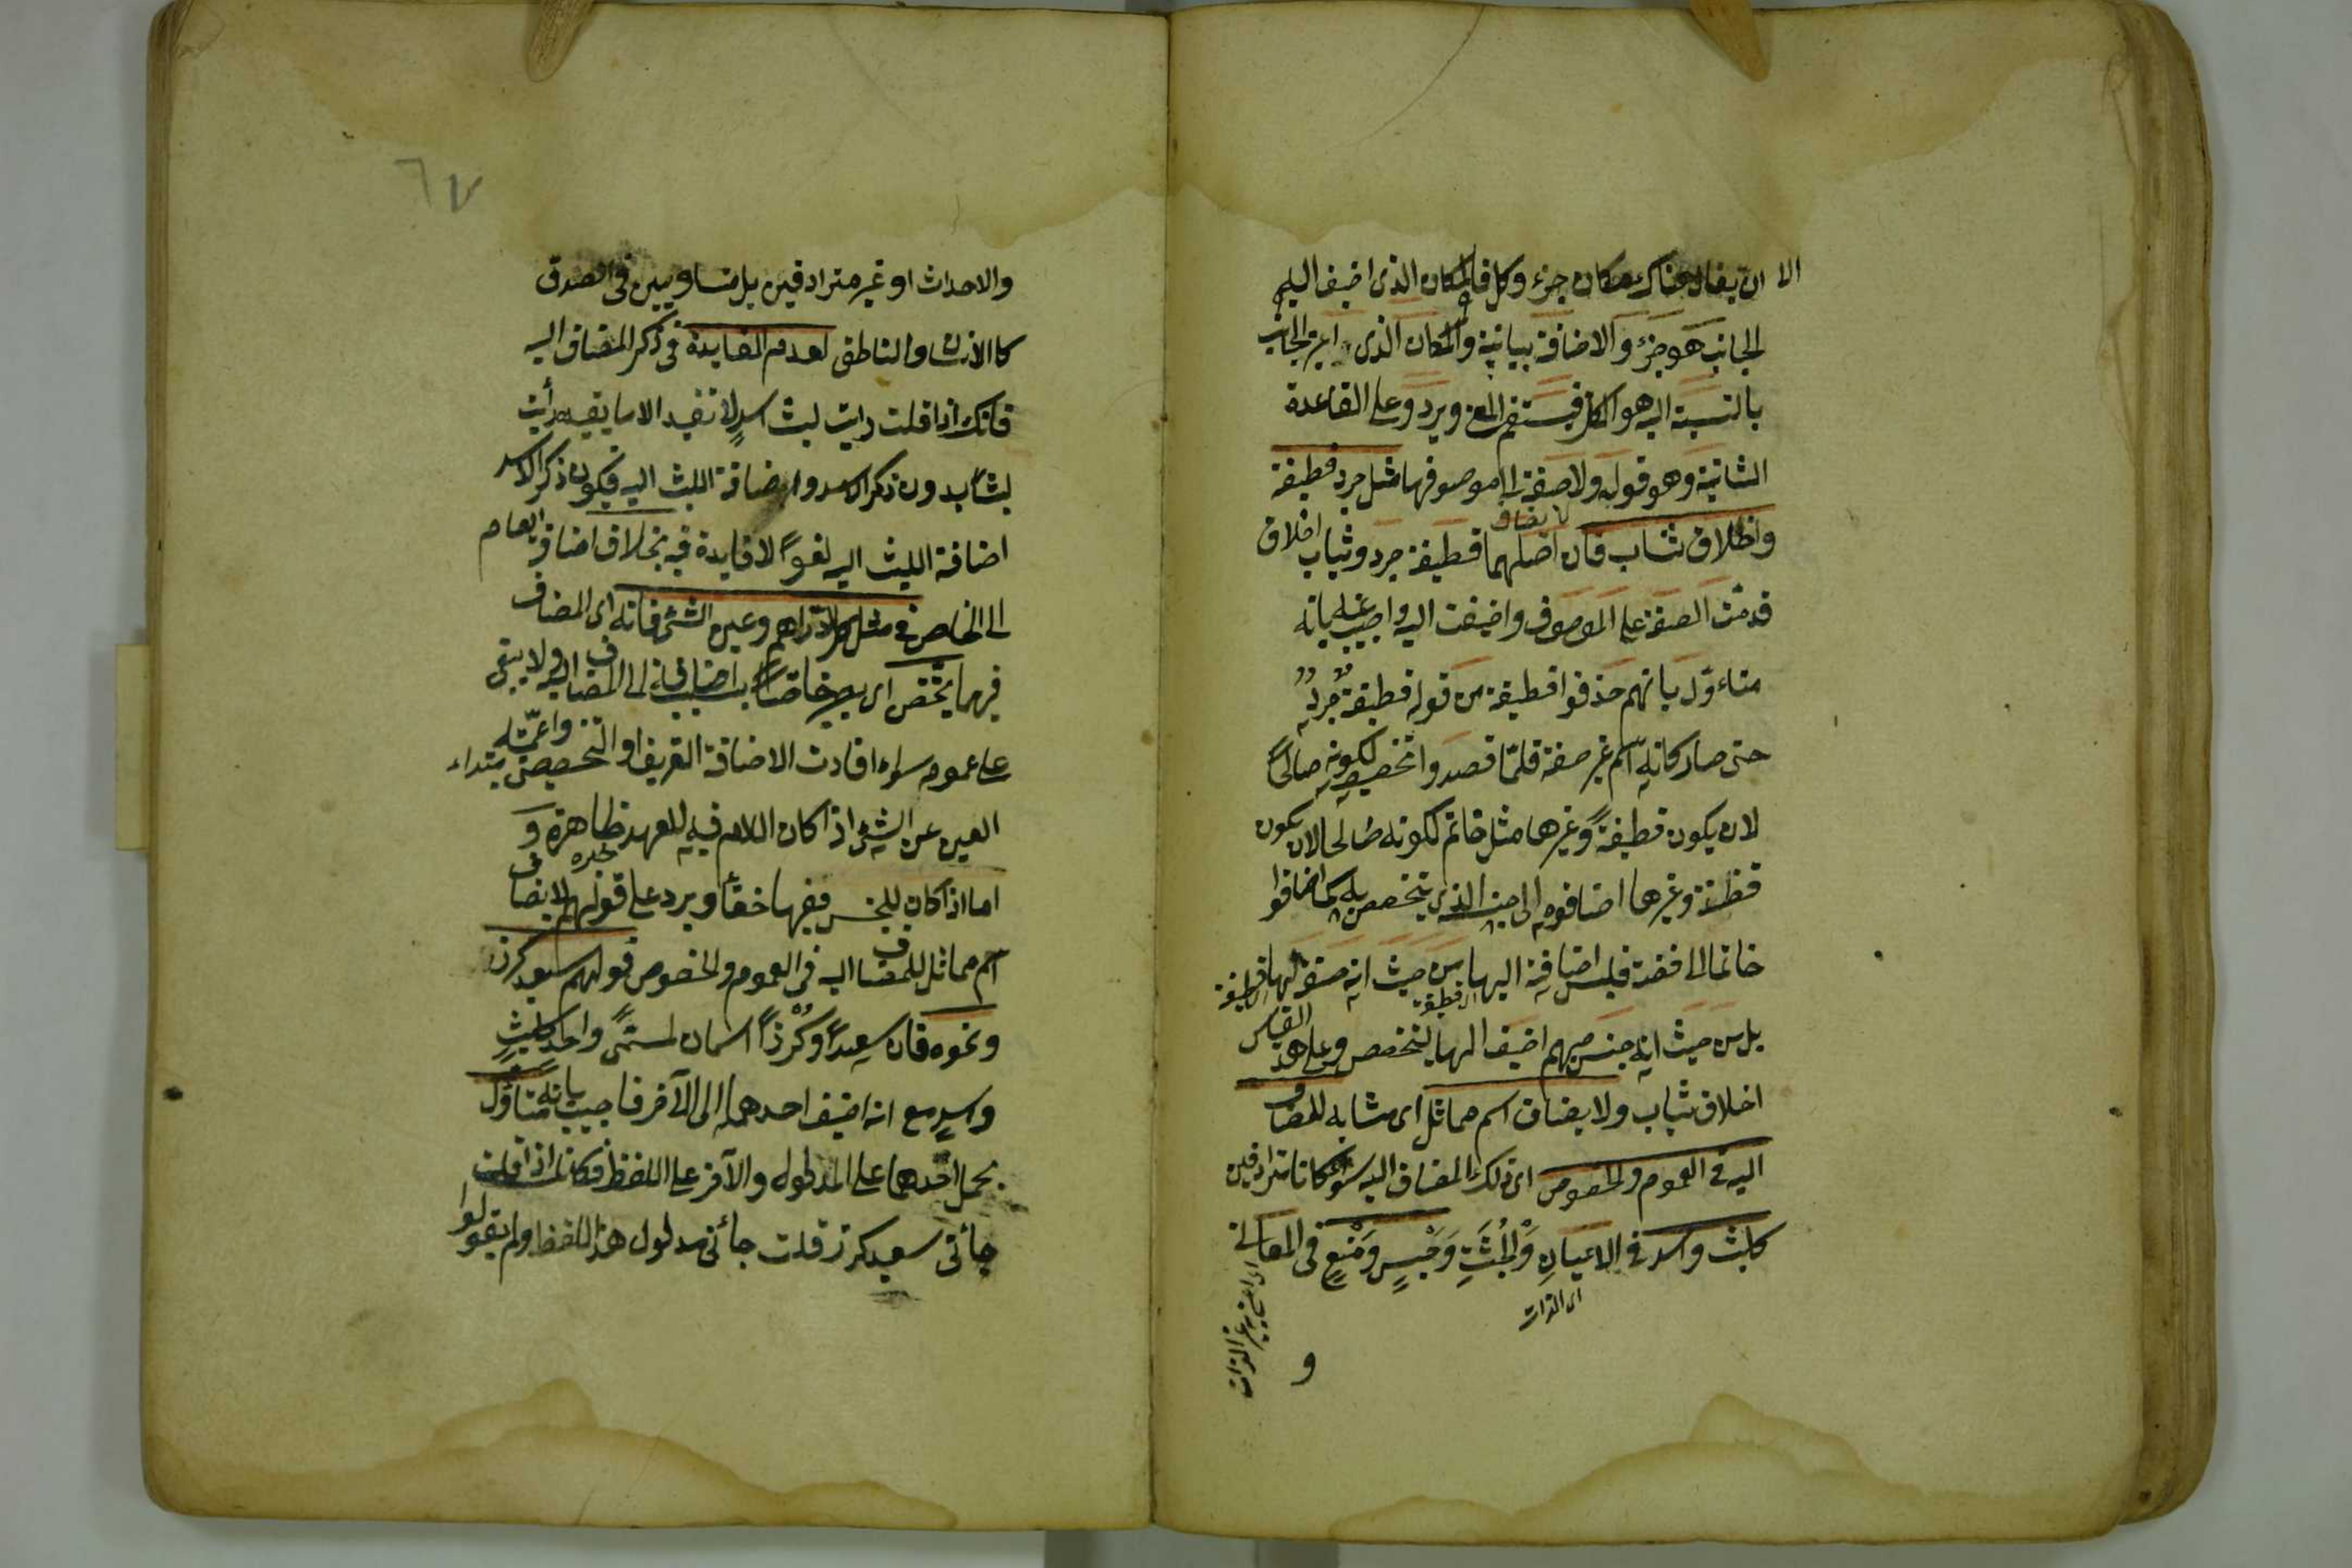 الا ان يقال هناك مكان جزء وكل فالمكان الذى اضيف اليه
الجانب هو جزء والاضافة بيانية والمكان الذى اعتبر الجانب
بالنسبة اليه هو الكل فيستقيم المعنى ويرد وعلى القاعدة
الثانية وهو قوله ولا صفة الى موصوفها مثل جرد قطيفة
لا يضاف
واخلاق ثياب فان اصلهما قطيفة جرد وثياب اخلاق
قدمت الصفة على الموصوف واضيفت اليه واجيب عنه بانه
متاءوّل بانهم حذفوا قطيفة من قولهم قطيفة جردٌ
حتى صار كانه اسم غير صفة فلمّا قصدوا تخصيصه لكونه صالحًا
لان يكون قطيفةً وغيرها مثل خاتم لكونه صالحا لان يكون
فضة وغيرها اضافوه الى جنسه الذى يتخصص به كما اضافوا
خاتما الى فضة فليس اضافته اليها من حيث انه صفة لها
القطيفة
بل من حيث انه جنس مبهم اضيف اليها ليتخصص وعلى هذا القياس
اخلاق ثياب ولا يضاف اسم مماثل اى مشابه للمضاف
اليه فى العموم والخصوص اى ذلك المضاف اليه سواء كانا مترادفين
كليث واسد فى الاعيانِ وَالجُثَثِ وَحَبْسٍ وَمَنْعٍ فى المعانى
اى الذوات
و
٦٧
والاحداث او غير مترادفين بل متساويين فى الصدق
كالانسان والناطق لعدم الفايدة فى ذكر المضاف اليه
فانك اذا قلت رايت ليث اسدٍ لا تفيد الا ما يفيده رايت
ليثا بدون ذكر الاسد واضافة الليث اليه فيكون ذكر الاسد
اضافة الليث اليه لغوًا لا فايدة فيه بخلاف اضافة العام
الى الخاص فى مثل كل الدراهم وعين الشئ فانه اى المضاف
فيهما يختص اى يصير خاصًا بسبب اضافته الى المضاف اليه ولا يبقى
على عمومه سواء افادت الاضافة التعريف او التخصيص واعمّيّة مبتداء
العين عن الشئ اذا كان اللام فيه للعهد ظاهرة و
خبره
اما اذا كان للجنس ففيها خفأ ويرد على قولهم لا يضاف
اسم مماثل للمضاف اليه فى العموم والخصوص قولهم سعيد كرز
ونحوه فان سعيدًا وكُرْزًا اسمان لمسمًّى واحد كليثٍ
واسدٍ مع انه اضيف احدهما الى الآخر فاجيب بانه متاوّل
بحمل احدهما على المدلول والآخر على اللفظ فكانك اذا قلت
جأنى سعيد كرز قلت جأنى مدلول هذا اللفظ ولم يقولوا